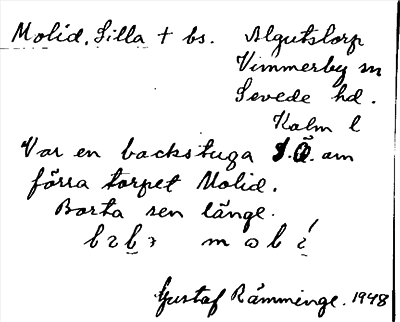 Molid, Lilla + bs. Algutstorp
Vimmerby sn
Sevede hd.
Kalm l
Var en backstuga S.Ö. om
förra torpet Molid.
Borta sen länge.
Gustaf Rämminge. 1948